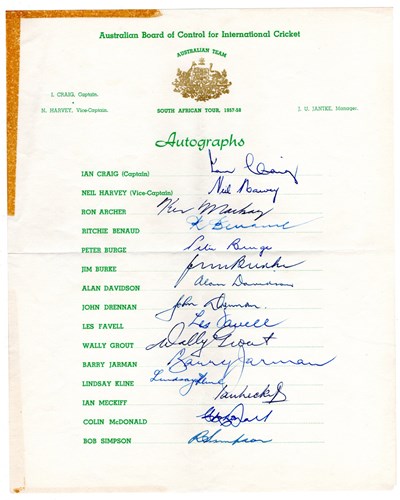 Australian Board of Control for International Cricket
AUSTRALIAN TEAM
I. CRAIG, Captain.
N. HARVEY, Vice-Captain.
SOUTH AFRICAN TOUR, 1957-58
J. U. JANTKE, Manager.
Autographs
IAN CRAIG (Captain) Ian Craig
NEIL HARVEY (Vice-Captain) Neil Harvey
RON ARCHER Ken Mackay
RITCHIE BENAUD R Benaud
PETER BURGE Peter Burge
JIM BURKE Jim Burke
ALAN DAVIDSON Alan Davidson
JOHN DRENNAN John Drennan
LES FAVELL Les Favell
WALLY GROUT Wally Grout
BARRY JARMAN Barry Jarman
LINDSAY KLINE Lindsay Kline
IAN MECKIFF Ian Meckiff
COLIN McDONALD
BOB SIMPSON R Simpson